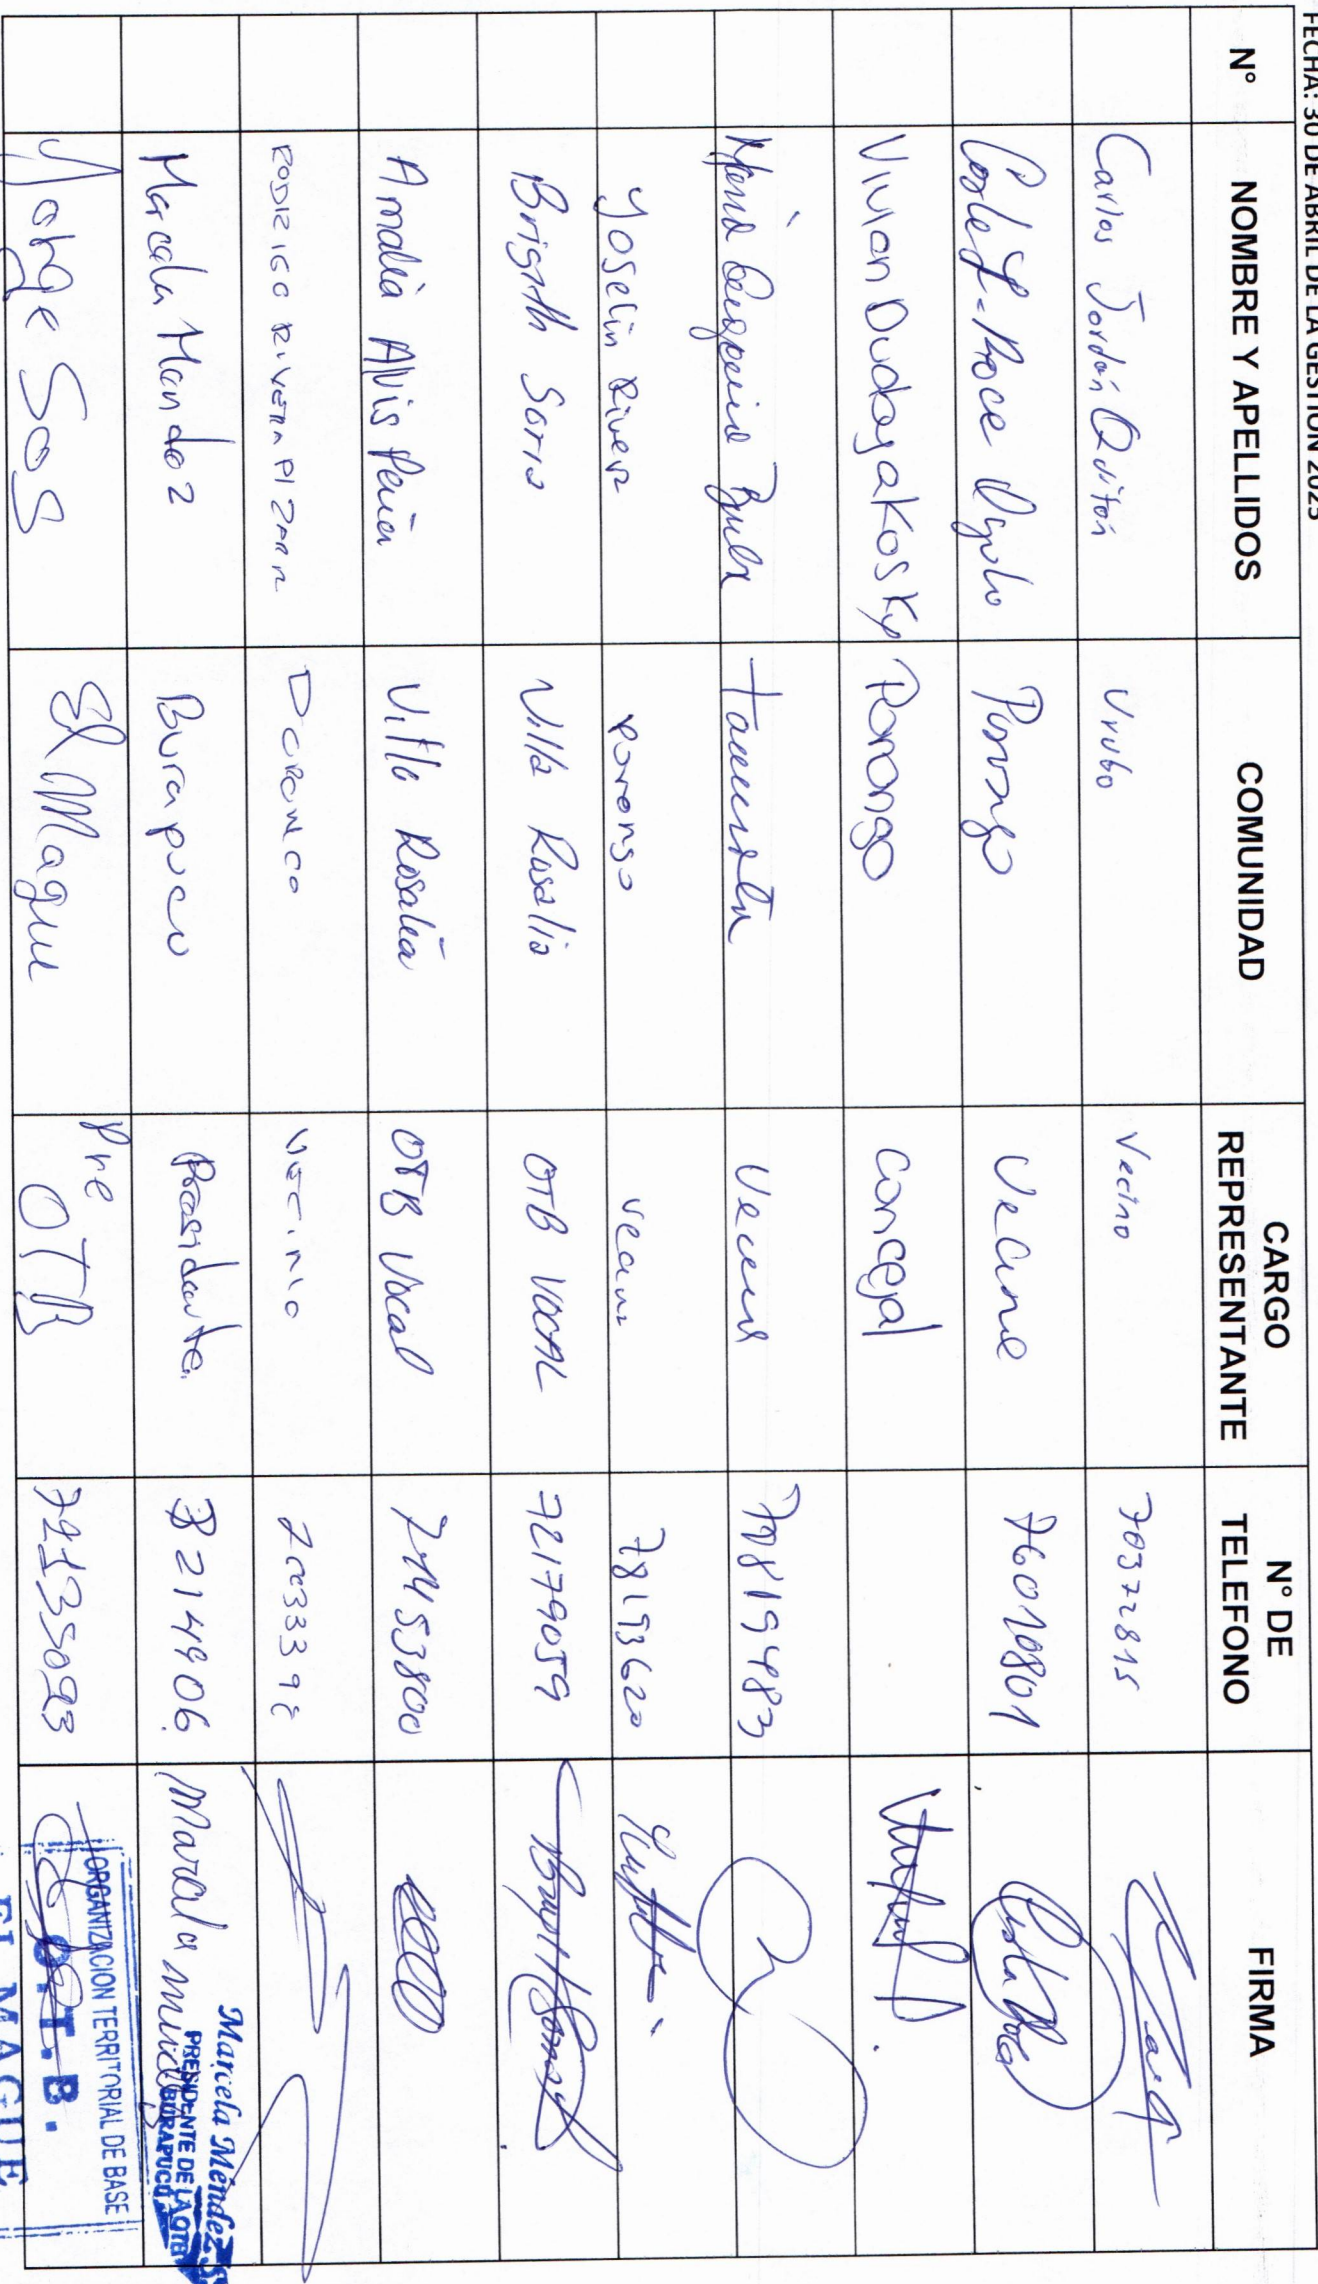 FECHA: 30 DE ABRIL DE LA GESTION 2025
N° NOMBRE Y APELLIDOS COMUNIDAD CARGO REPRESENTANTE N° DE TELEFONO FIRMA
Carlos Jordán Quitón Urubo Vecino 70372815
Roca Porongo Vecino 76010801
Vivian Dudayakosky Porongo Concejal
María Vecina 708119483
Yoselin Rivera Porongo Vecina 78193620
Brigith Soria Villa Rosalia OTB VOCAL 72179059
Amalia Alvis Peña Villa Rosalía OTB Vocal 71453800
RODRIGO RIVERA PIZARR Vecino
Marcela Mendez Burapucu Presidente 8214906
Jorge Sos El Mague Pre OTB
Marcela Méndez S
PRESIDENTE DE LA OTB
BURAPUCU
ORGANIZACION TERRITORIAL DE BASE
O.T.B.
EL MAGUE